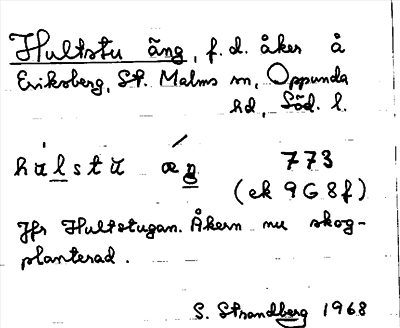 Hultstu äng, f. d. åker å
Eriksberg, St. Malms sn, Oppunda
hd, Söd. l.
hulstu æŋ 773
(ek 9G 8f)
Jfr Hultstugan. Åkern nu skog-
planterad.
S. Strandberg 1968